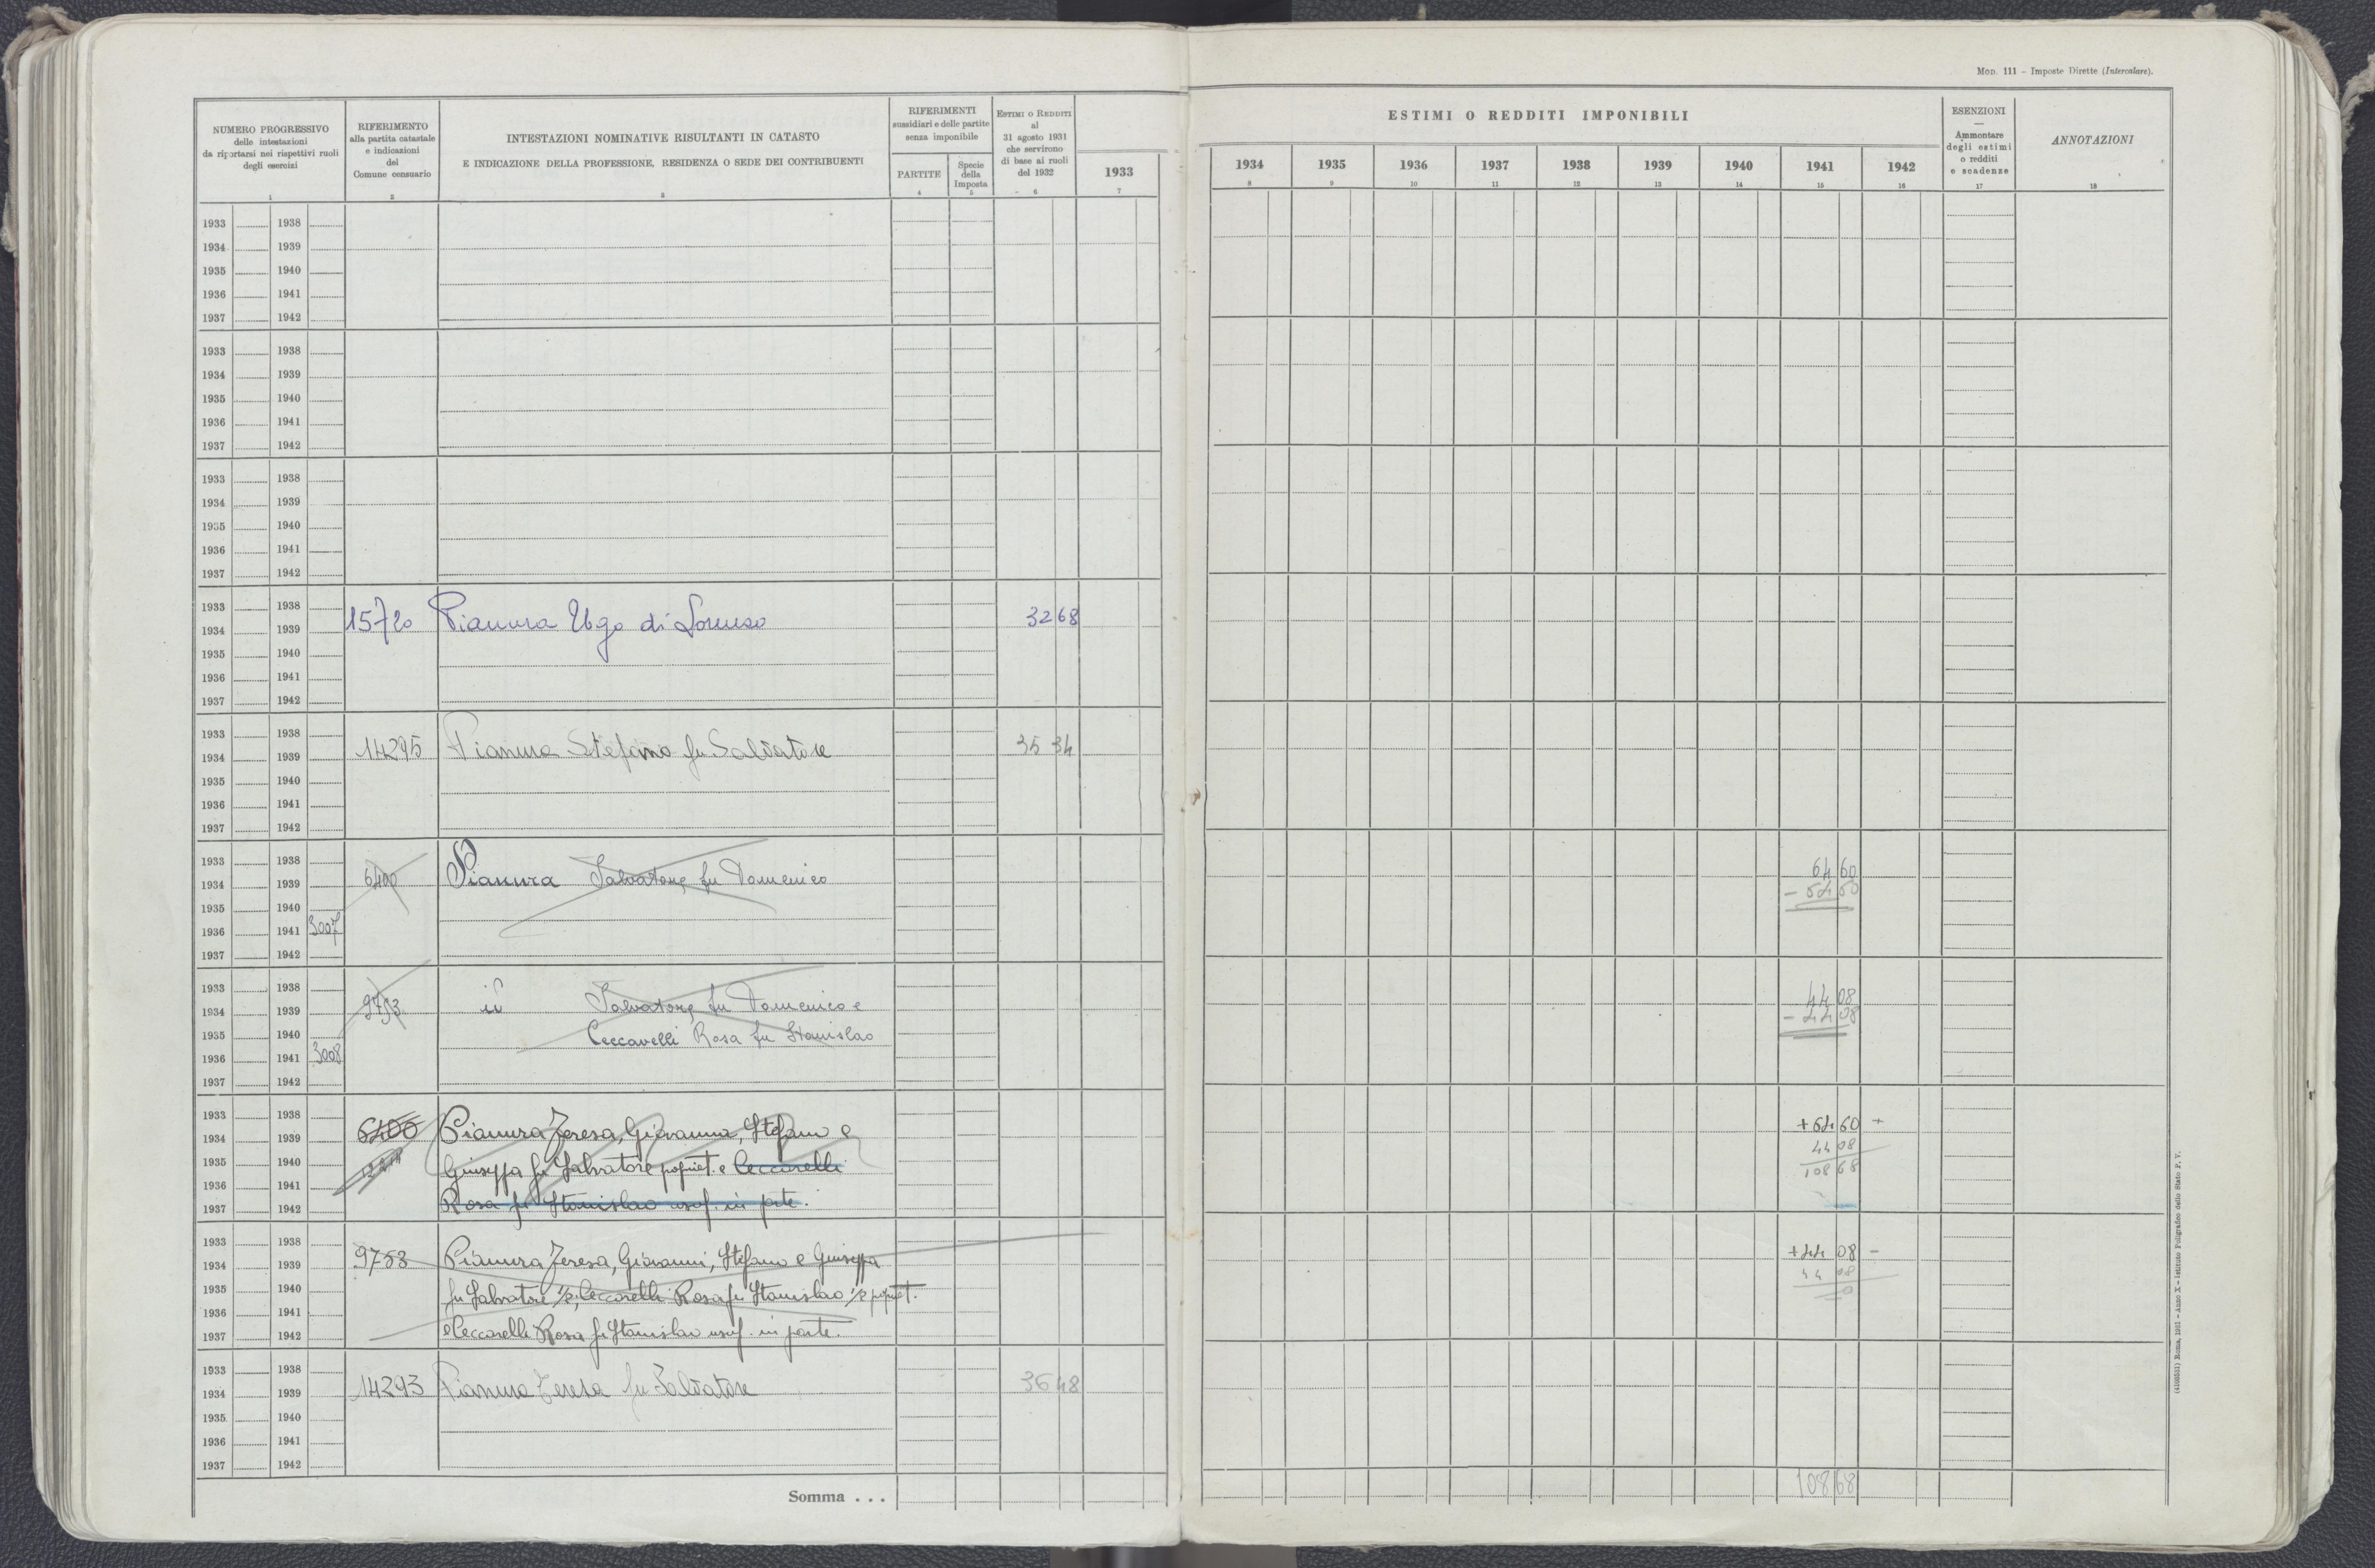 Mod. 111 – Imposte Dirette (Intercalare).
NUMERO PROGRESSIVO
delle intestazioni
da riportarsi nei rispettivi ruoli
degli esercizi
1
RIFERIMENTO
alla partita catastale
e indicazioni
del
Comune censuario
2
INTESTAZIONI NOMINATIVE RISULTANTI IN CATASTO
E INDICAZIONE DELLA PROFESSIONE, RESIDENZA O SEDE DEI CONTRIBUENTI
3
RIFERIMENTI
sussidiari e delle partite
senza imponibile
PARTITE
4
Specie
della
Imposta
5
ESTIMI O REDDITI
al
31 agosto 1931
che servirono
di base ai ruoli
del 1932
6
1933
7
ESTIMI O REDDITI IMPONIBILI
1934 1935 1936 1937 1938 1939 1940 1941 1942
8 9 10 11 12 13 14 15 16
ESENZIONI
—
Ammontare
degli estimi
o redditi
e scadenze
17
ANNOTAZIONI
18
1933 1938
1934 1939
1935 1940
1936 1941
1937 1942
1933 1938
1934 1939
1935 1940
1936 1941
1937 1942
1933 1938
1934 1939
1935 1940
1936 1941
1937 1942
1933 1938
1934 1939 15720 Pianura Ugo di Lorenzo 32 68
1935 1940
1936 1941
1937 1942
1933 1938
1934 1939 14295 Pianura Stefano fu Salvatore 35 34
1935 1940
1936 1941
1937 1942
1933 1938 64 60
1934 1939 6400 Pianura Salvatore fu Domenico
1935 1940 – 64 60
1936 1941 3007
1937 1942
1933 1938 44 08
1934 1939 9753 id Salvatore fu Domenico e
1935 1940 Ceccarelli Rosa fu Stanislao – 44 08
1936 1941 3008
1937 1942
1933 1938
1934 1939 6400 Pianura Teresa, Giovanna, Stefano e + 64 60 +
44 08
1935 1940 Giuseppa fu Salvatore propriet. e Ceccarelli 108 68
1936 1941
1937 1942 Rosa fu Stanislao usuf. in parte.
1933 1938
1934 1939 9753 Pianura Teresa, Giovanni, Stefano e Giuseppa + 44 08 –
44 08
1935 1940 fu Salvatore 1/2, Ceccarelli Rosa fu Stanislao 1/2 propriet.
1936 1941
1937 1942 e Ceccarelli Rosa fu Stanislao usuf. in parte.
1933 1938
1934 1939 14293 Pianura Teresa fu Salvatore 36 48
1935 1940
1936 1941
1937 1942
Somma . . . 108 68
(4108551) Roma, 1931 – Anno X – Istituto Poligrafico dello Stato P. V.